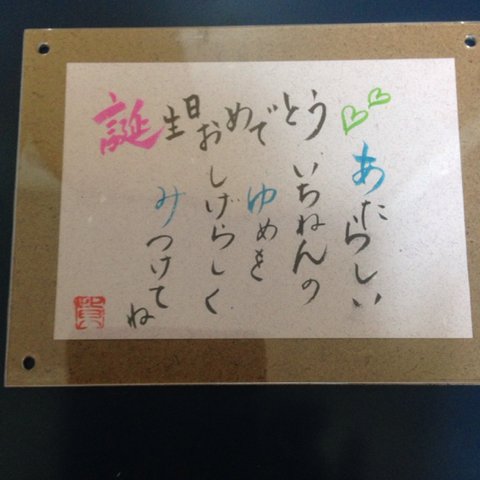 誕生日おめでとう
あたらしい
いちねんの
ゆめを
しげらしく
みつけてね